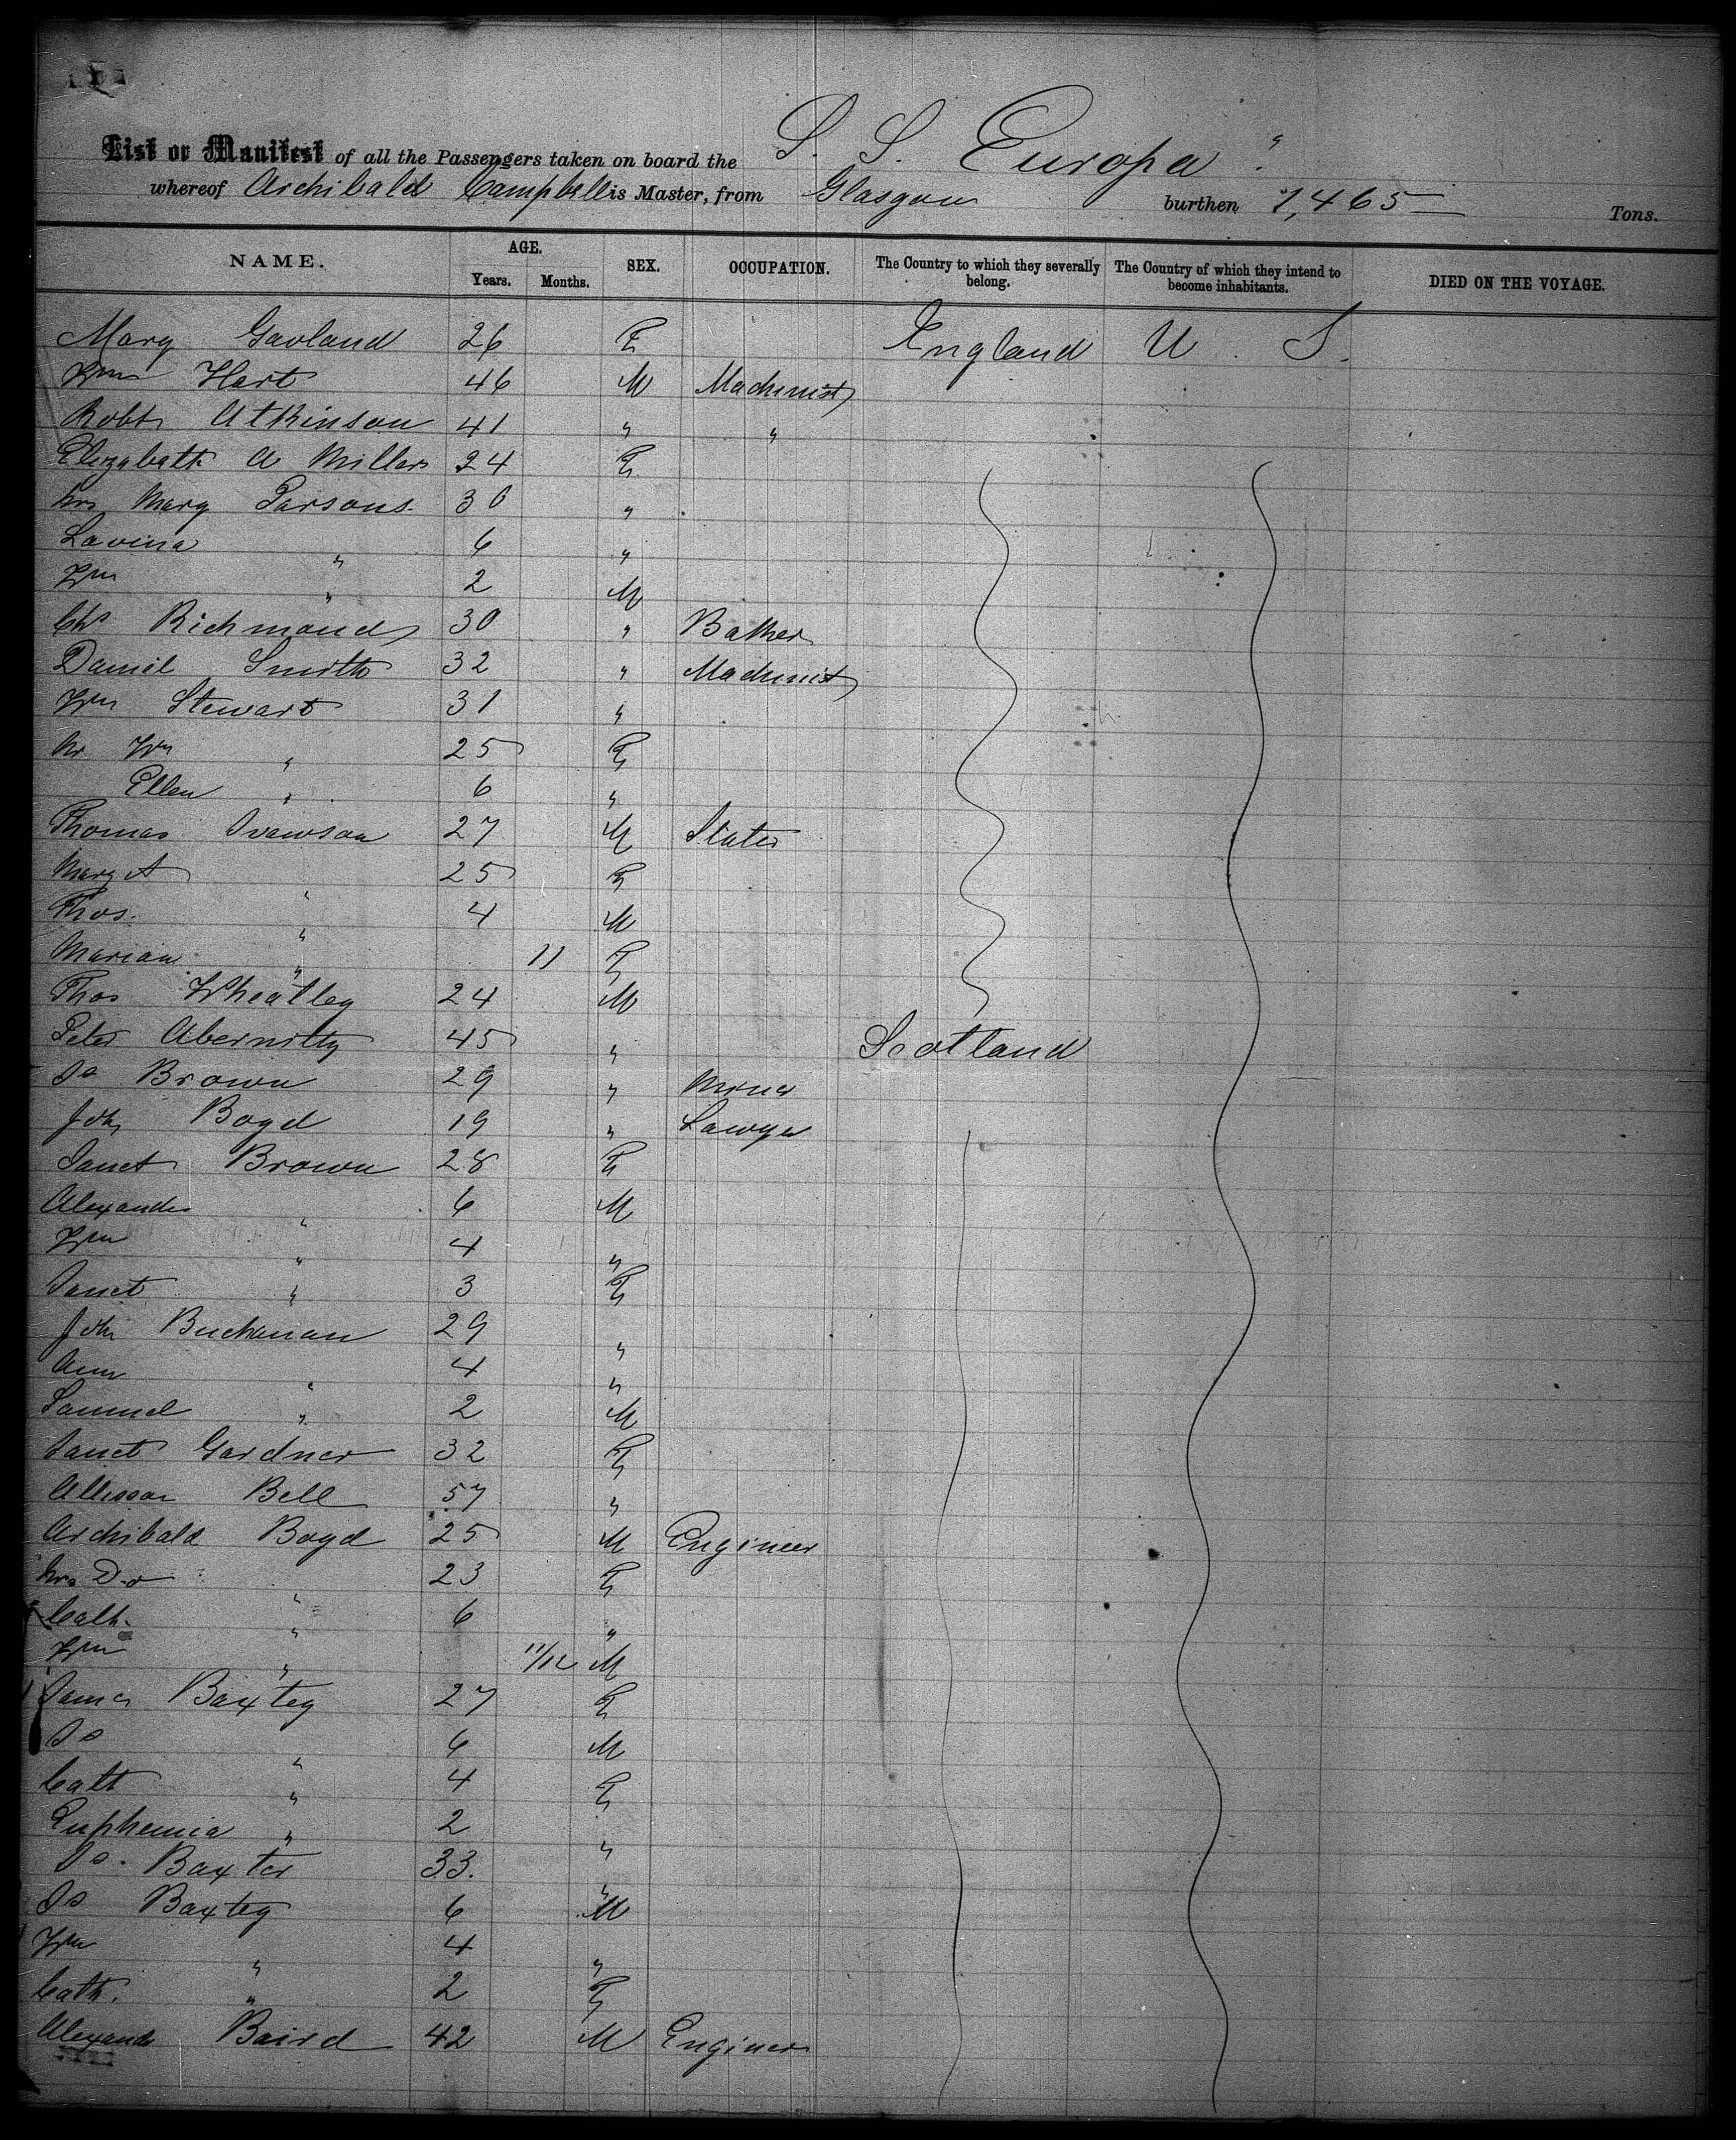 List or Manifest of all the Passengers taken on board the S. S. Europa "
whereof Archibald Campbell is Master, from Glasgow burthen 1,465 Tons.
NAME. AGE. Years. Months. SEX. OCCUPATION. The Country to which they severally belong. The Country of which they intend to become inhabitants. DIED ON THE VOYAGE.
Mary Garland 26 F England U. S.
Wm Hart 46 M Machinist
Robt Atkinson 41 " "
Elizabeth A Miller 24 F
Mrs Mary Parsons 30 "
Lavina " 6 "
Wm " 2 M
Chs Richmond 30 " Baker
Daniel Smith 32 " Machinist
Wm Stewart 31 "
Mr Wm " 25 F
Ellen " 6 "
Thomas 27 M Slater
Margt " 25 F
Thos. " 4 M
Marian " 11 F
Thos Wheatley 24 M
Peter Abernitty 45 " Scotland
Js Brown 29 " Miner
Joh Boyd 19 " Lawyer
Janet Brown 28 F
Alexander " 6 M
Wm " 4 "
Janet " 3 F
Joh Buchanan 29 "
Ann " 4 "
Samuel " 2 M
Janet Gardner 32 F
Allison Bell 57 "
Archibald Boyd 25 M Engineer
Mrs Do " 23 F
Cath. " 6 "
Wm " 11/12 M
James Baxtey 27 F
Js " 6 M
Cath " 4 F
Euphemia " 2 "
Js. Baxter 33. "
Js Baxtey 6 M
Wm " 4 "
Cath. " 2 F
Alexande Baird 42 M Engineer